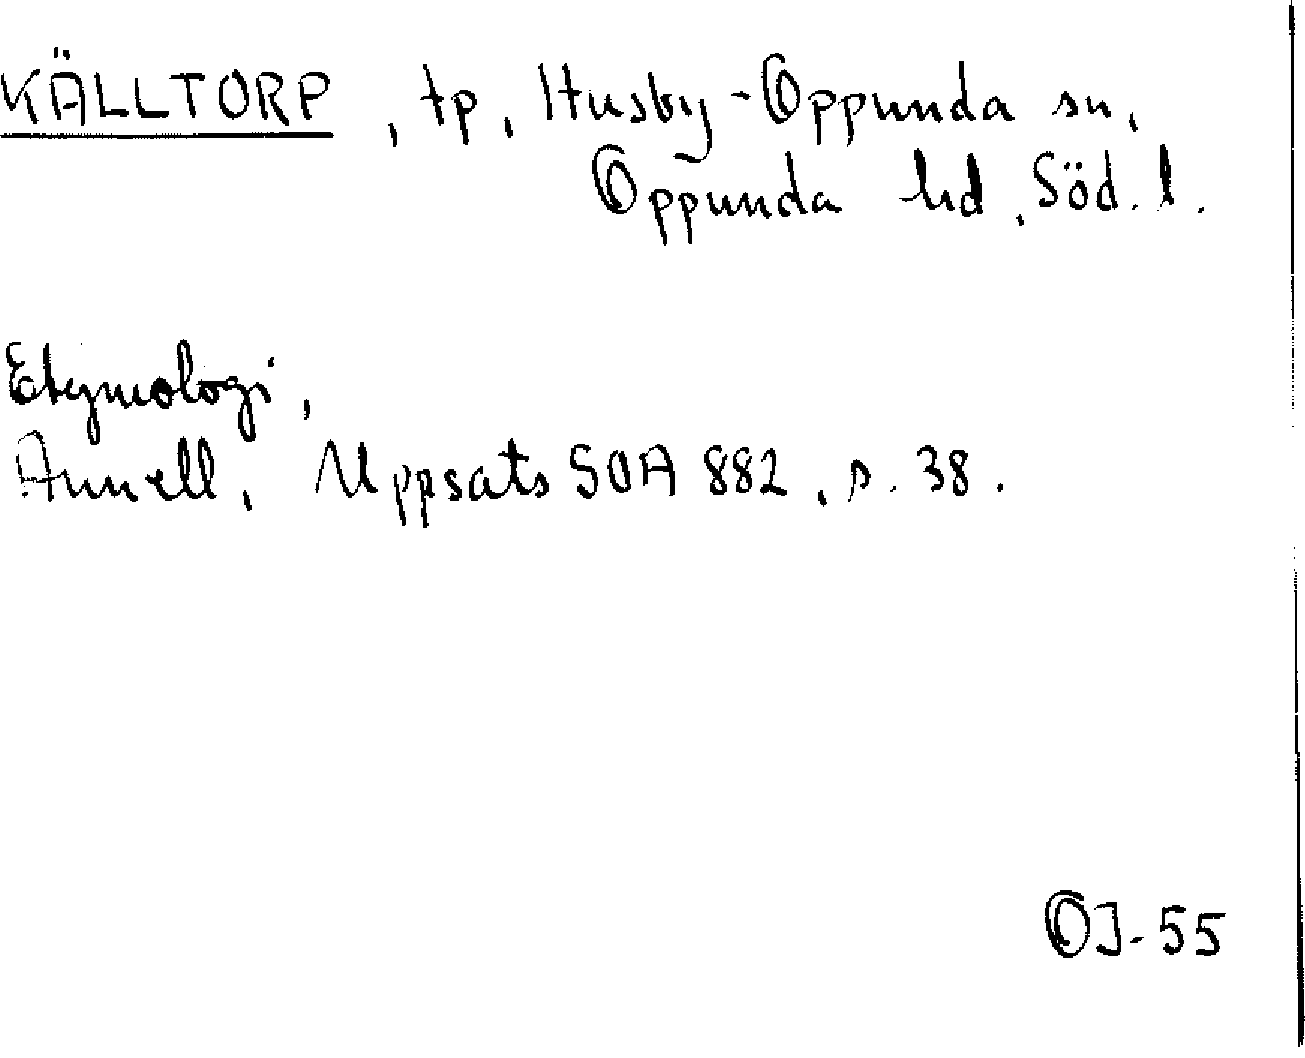 KÄLLTORP, tp, Husby-Oppunda sn,
Oppunda hd, Söd. l.
Etymologi,
Annell, Uppsats SOA 882, s. 38.
OJ-55